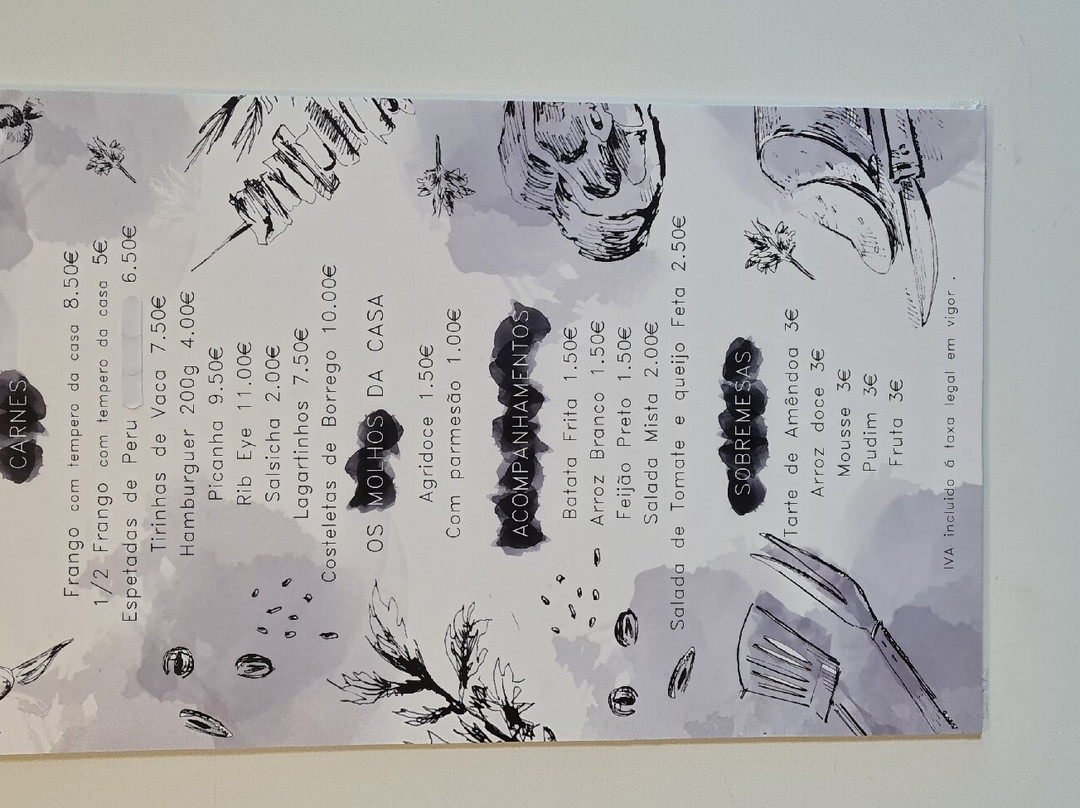 CARNES
Frango com tempero da casa 8.50€
1/2 Frango com tempero da casa 5€
Espetadas de Peru 6.50€
Tirinhas de Vaca 7.50€
Hamburguer 200g 4.00€
Picanha 9.50€
Rib Eye 11.00€
Salsicha 2.00€
Lagartinhos 7.50€
Costeletas de Borrego 10.00€
OS MOLHOS DA CASA
Agridoce 1.50€
Com parmesão 1.00€
ACOMPANHAMENTOS
Batata Frita 1.50€
Arroz Branco 1.50€
Feijão Preto 1.50€
Salada Mista 2.00€
Salada de Tomate e queijo Feta 2.50€
SOBREMESAS
Tarte de Amêndoa 3€
Arroz doce 3€
Mousse 3€
Pudim 3€
Fruta 3€
IVA incluido á taxa legal em vigor .